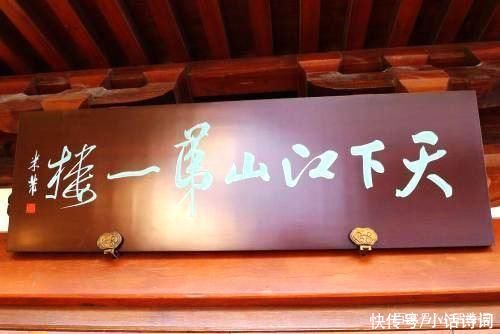 天下江山第一楼
米芾
快传号/小话诗词